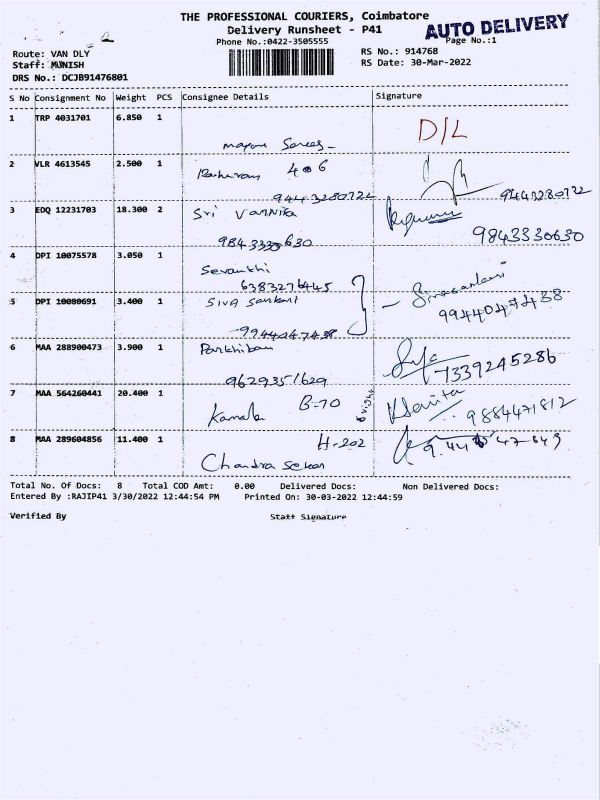 THE PROFESSIONAL COURIERS, Coimbatore
AUTO DELIVERY
Delivery Runsheet - P41
Phone No.:0422-3505555
Page No.:1
2
Route: VAN DLY
RS No.: 914768
Staff: MUNISH
RS Date: 30-Mar-2022
DRS No.: DCJB91476801
S No Consignment No Weight PCS Consignee Details Signature
1 TRP 4031701 6.850 1
D/L
2 VLR 4613545 2.500 1 406
9443280722 9443280722
3 EDQ 12231703 18.300 2 Sri Varnika
9843330630 9843330630
4 DPI 10075578 3.050 1 Sevanthi
6383276445
5 DPI 10080691 3.400 1 Siva Sankari
9944047438 9944047438
6 MAA 288900473 3.900 1 Parkhiban
9629351629 7339245286
7 MAA 564260441 20.400 1 B-70
Kamala 9884471812
8 MAA 289604856 11.400 1 H-202
Chandra Sekar
Total No. Of Docs: 8 Total COD Amt: 0.00 Delivered Docs: Non Delivered Docs:
Entered By :RAJIP41 3/30/2022 12:44:54 PM Printed On: 30-03-2022 12:44:59
Verified By Staff Signature